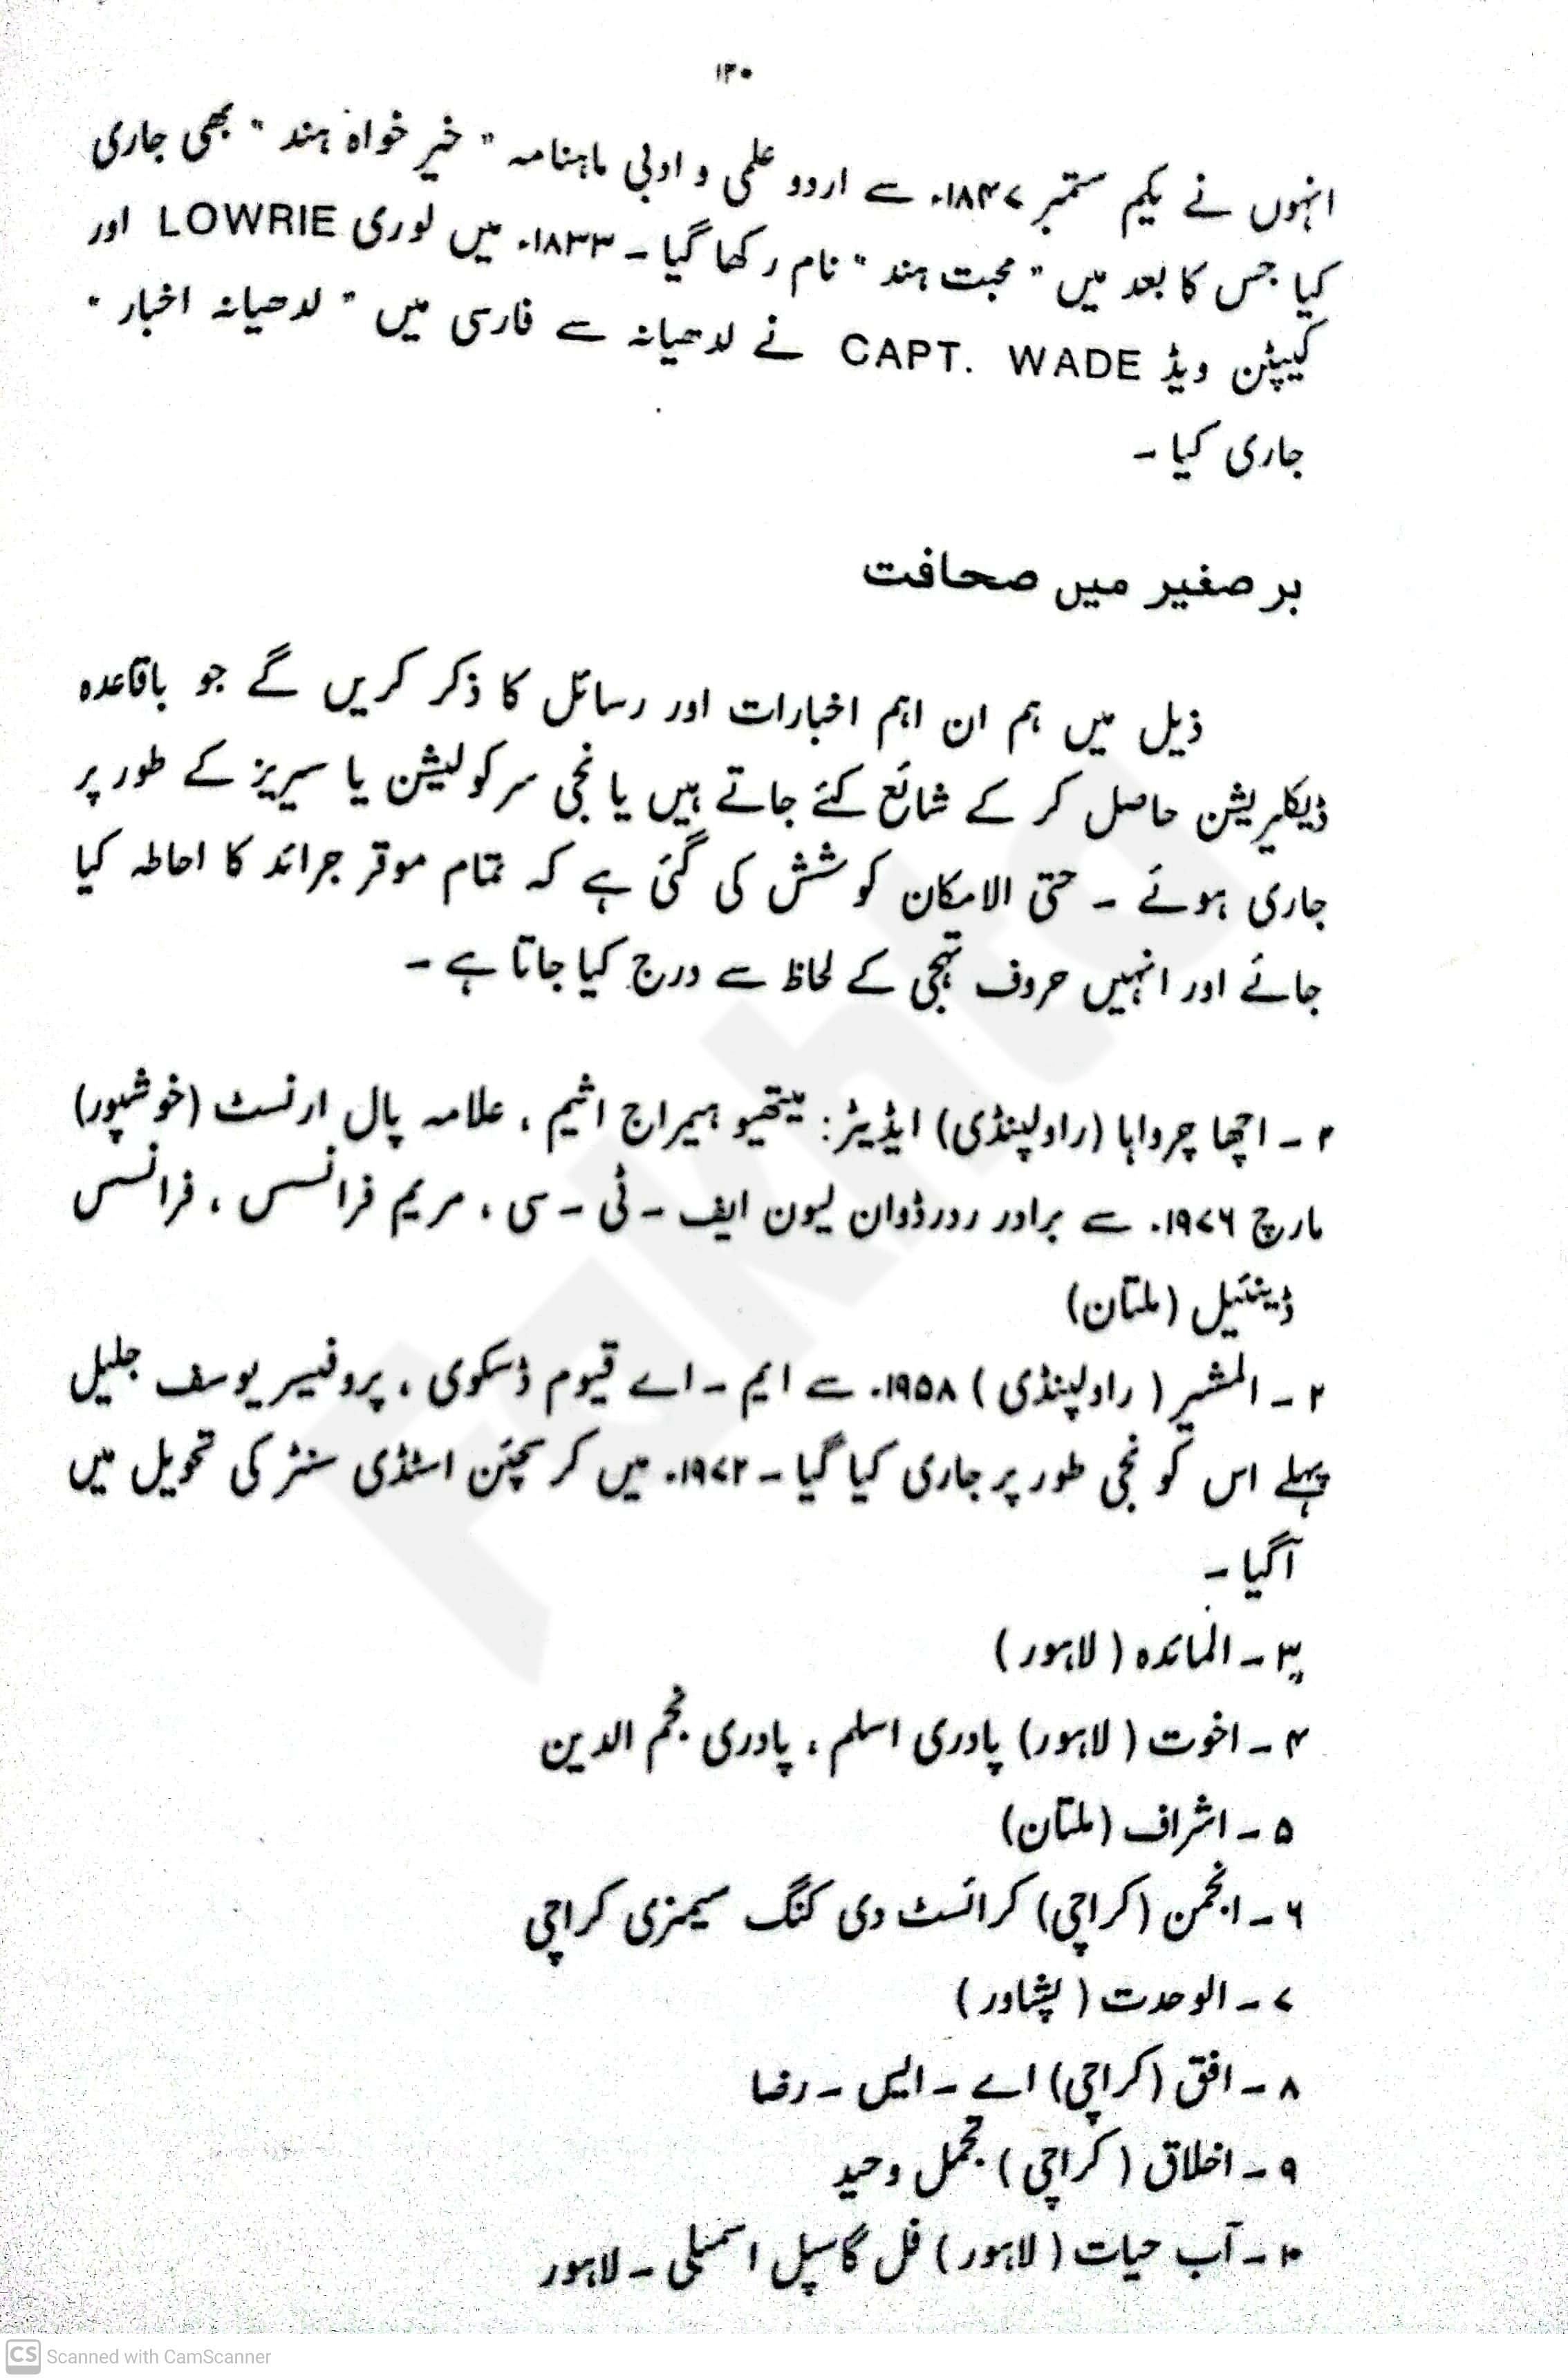 ۱۳۰
انہوں نے یکم ستمبر ۱۸۴۷ء سے اردو علمی و ادبی ماہنامہ " خیر خواہ ہند " بھی جاری
کیا جس کا بعد میں " محبت ہند " نام رکھا گیا ۔ ۱۸۳۳ء میں لوری LOWRIE اور
کیپٹن ویڈ CAPT. WADE نے لدھیانہ سے فارسی میں " لدھیانہ اخبار "
جاری کیا ۔
بر صغیر میں صحافت
ذیل میں ہم ان اہم اخبارات اور رسائل کا ذکر کریں گے جو باقاعدہ
ڈیکلیریشن حاصل کر کے شائع کئے جاتے ہیں یا نجی سرکولیشن یا سیریز کے طور پر
جاری ہوئے ۔ حتی الامکان کوشش کی گئی ہے کہ تمام موقر جرائد کا احاطہ کیا
جائے اور انہیں حروف تہجی کے لحاظ سے درج کیا جاتا ہے ۔
۔ اچھا چرواہا (راولپنڈی) ایڈیٹر: میتھیو ہیمراج اثیم ، علامہ پال ارنسٹ (خوشپور)
مارچ ۱۹۷۶ء سے برادر رورڈوان لیون ایف ۔ ٹی ۔ سی ، مریم فرانسس ، فرانسس
ڈینئیل (ملتان)
۲ ۔ المشیر ( راولپنڈی ) ۱۹۵۸ء سے ایم ۔ اے قیوم ڈسکوی ، پروفیسر یوسف جلیل
پہلے اس کو نجی طور پر جاری کیا گیا ۔ ۱۹۷۲ء میں کرسچئن اسٹڈی سنٹر کی تحویل میں
آگیا ۔
۳ ۔ المائدہ ( لاہور )
۴ ۔ اخوت ( لاہور) پادری اسلم ، پادری نجم الدین
۵ ۔ اشراف (ملتان)
۶ ۔ انجمن (کراچی) کرائسٹ دی کنگ سیمنری کراچی
۷ ۔ الوحدت ( پشاور )
۸ ۔ افق (کراچی) اے ۔ ایس ۔ رضا
۹ ۔ اخلاق ( کراچی ) تجمل وحید
۱۰ ۔ آب حیات ( لاہور ) فل گاسپل اسمبلی ۔ لاہور
CS Scanned with CamScanner